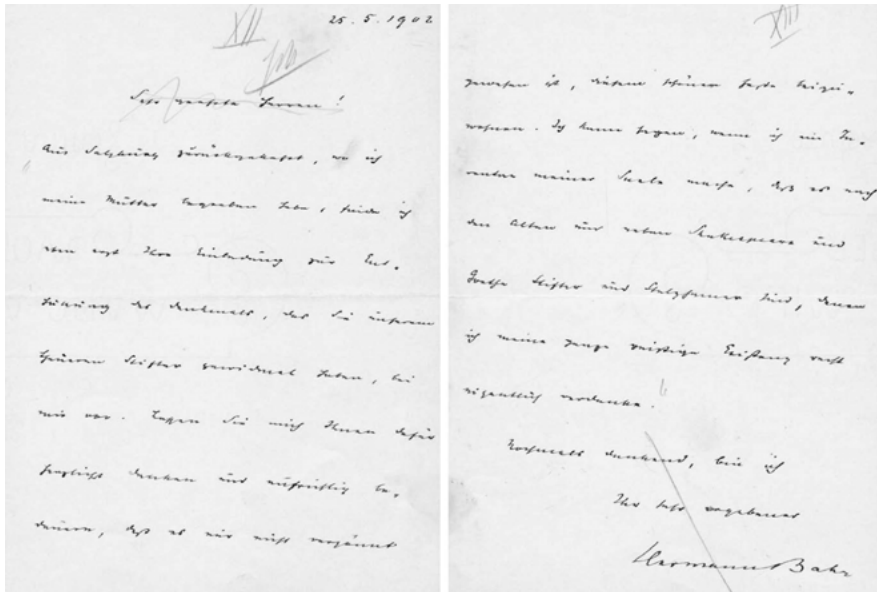 XII
25.5.1902
Sehr geehrte Herren!
Aus Salzburg zurückgekehrt, wo ich
meine Mutter begraben habe, finde ich
eben erst Ihre Einladung zur Ent-
hüllung des Denkmals, das Sie unserem
theueren Stifter gewidmet haben, bei
mir vor. Lassen Sie mich Ihnen dafür
herzlichst danken und aufrichtig be-
dauern, daß es mir nicht vergönnt
XIII
gewesen ist, diesem schönen Feste beizu-
wohnen. Ich kann sagen, wenn ich ein In-
ventar meiner Seele mache, daß es nach
den Alten und neben Shakespeare und
Goethe Stifter und Stelzhamer sind, denen
ich meine ganze geistige Existenz recht
eigentlich verdanke.
Nochmals dankend, bin ich
Ihr sehr ergebener
Hermann Bahr